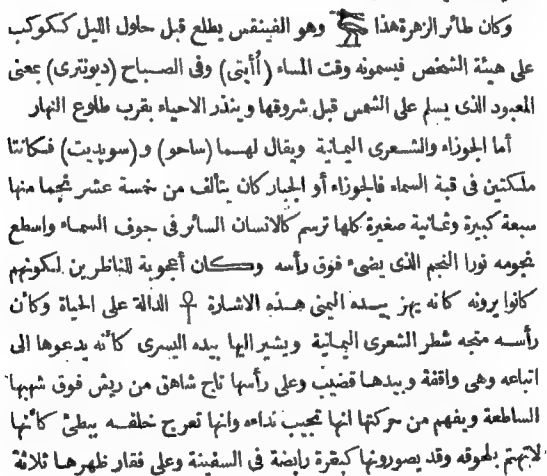 وكان طائر الزهرة هذا وهو الفينقس يطلع قبل حاول الليل ككوكب
على هيئة الشخص فيسمونه وقت المساء (أُأبتى) وفى الصباح (ديونترى) بمعنى
المعبود الذى يسلم على الشمس قبل شروقها وينذر الاحياء بقرب طلوع النهار
أما الجوزاء والشعرى اليمانية ويقال لهما (ساحو) و(سوپديت) فكانتا
ملكتين فى قبة السماء فالجوزاء أو الجبار كان يتألف من خمسة عشر نجما منها
سبعة كبيرة وثمانية صغيرة كلها ترسم كالانسان السائر فى جوف السماء واسطع
نجومه نورا النجم الذى يضىء فوق رأسه وكان أعجوبة للناظرين لكونهم
كانوا يرونه كانه يهز بيده اليمنى هذه الاشارة ☥ الدالة على الحياة وكان
رأسه متجه شطر الشعرى اليمانية ويشير اليها بيده اليسرى كأنه يدعوها الى
اتباعه وهى واقفة وبيدها قضيب وعلى رأسها تاج شاهق من ريش فوق شهبها
الساطعة ويفهم من حركتها انها تجيب نداءه وانها تعرج خلفه ببطئ كأنها
لاتهتم بلحوقه وقد يصورونها كبقرة رابضة فى السفينة وعلى فقار ظهرها ثلاثة